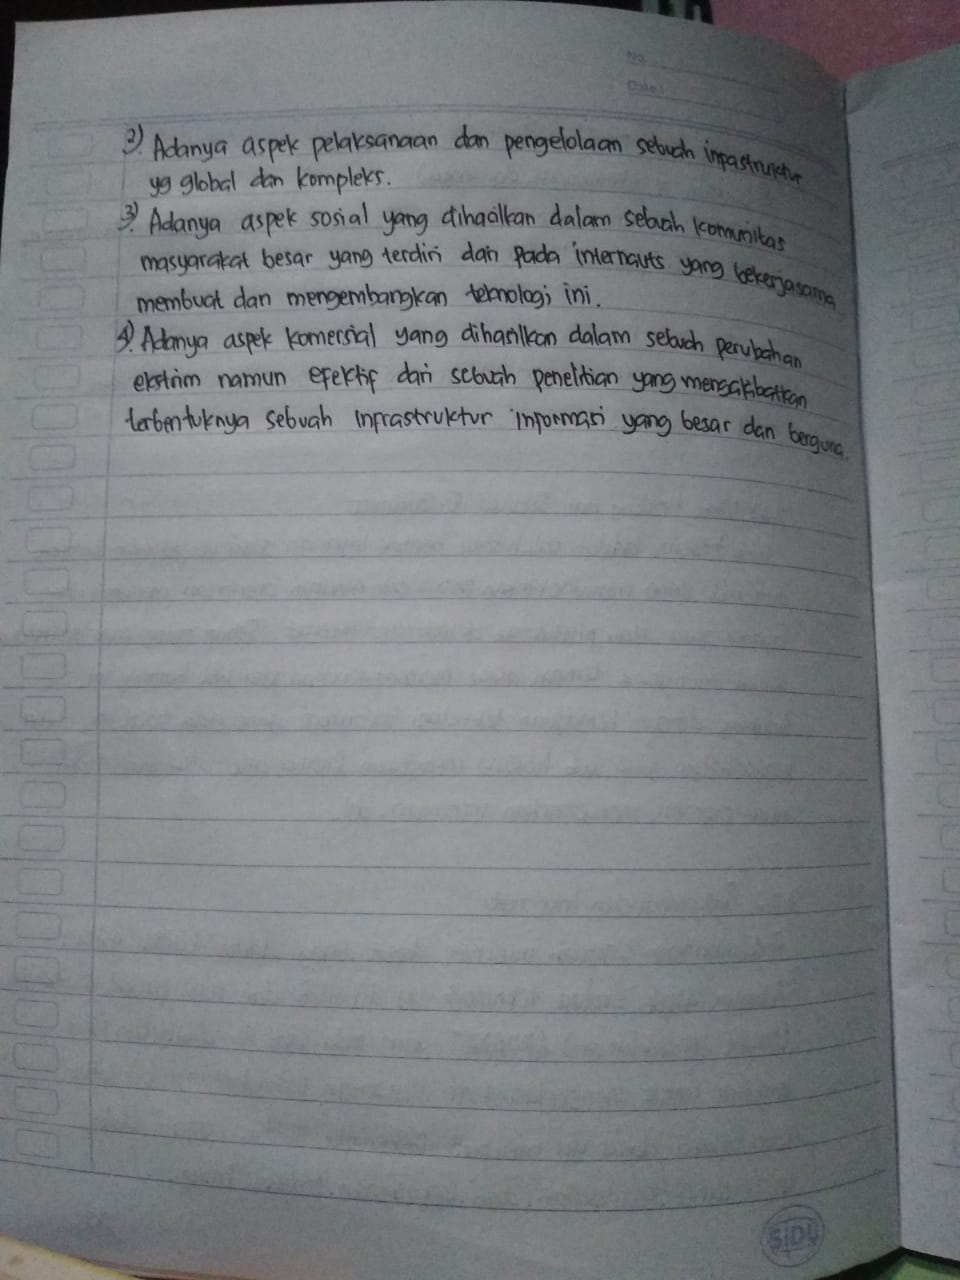 No.
Date:
2) Adanya aspek pelaksanaan dan pengelolaan sebuah inprastruktur
yg global dan kompleks.
3) Adanya aspek sosial yang dihasilkan dalam sebuah komunitas
masyarakat besar yang terdiri dari pada internauts yang bekerjasama
membuat dan mengembangkan teknologi ini.
4) Adanya aspek komersial yang dihasilkan dalam sebuah perubahan
ekstrim namun efektif dari sebuah penelitian yang mengakibatkan
terbentuknya sebuah inprastruktur informasi yang besar dan berguna.
SIDU